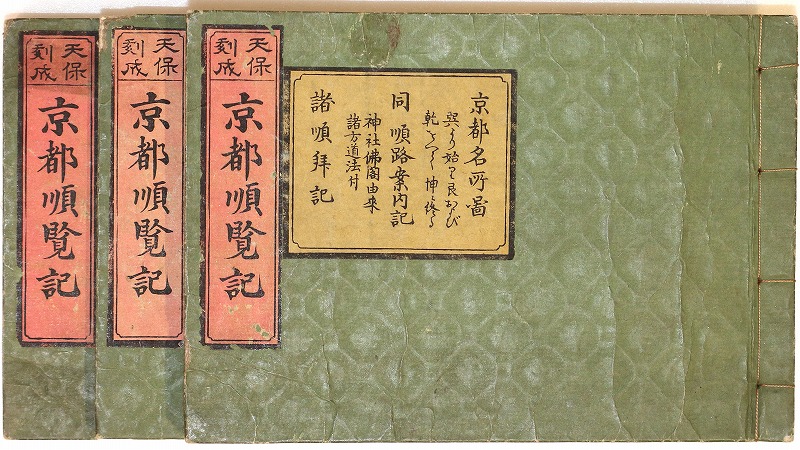 京都名所圖
巽より始り艮および
乾を 坤に終る
同順路案内記
神社佛閣由来
諸方道法付
諸順拝記
天保
刻成
京都順覧記
天保
刻成
京都順覧記
天保
刻成
京都順覧記